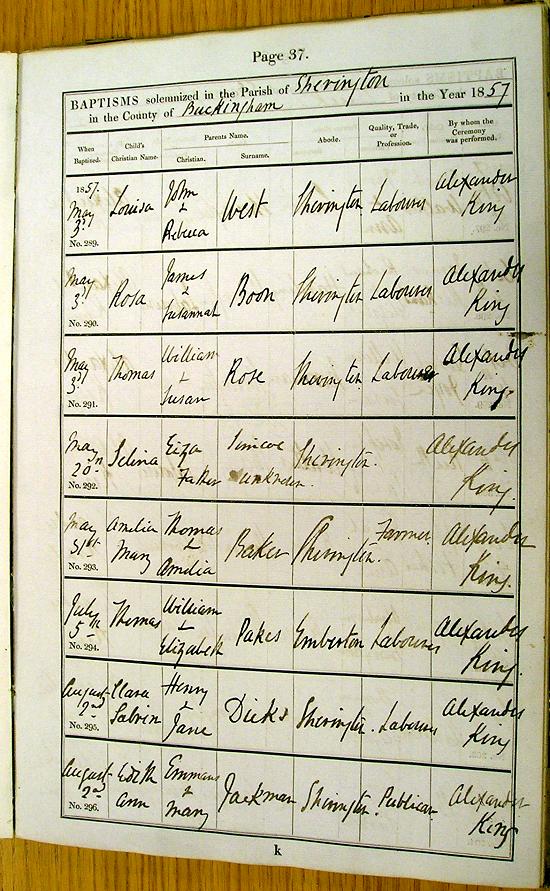 Page 37.
BAPTISMS solemnized in the Parish of Sherington
in the County of Buckingham in the Year 1857
When Baptized. Child's Christian Name. Parents Name. Christian. Surname. Abode. Quality, Trade, or Profession. By whom the Ceremony was performed.
1857. May 3d No. 289. Louisa John & Rebecca West Sherington Labourer Alexander King
May 3d No. 290. Rosa James & Susannah Boon Sherington Labourer Alexander King
May 3d No. 291. Thomas William & Susan Rose Sherington Labourer Alexander King.
May 20th No. 292. Selina Eliza Simcoe Father unknown Sherington. Alexander King.
May 31st No. 293. Amelia Mary Thomas & Amelia Baker Sherington. Farmer Alexander King.
July 5th No. 294. Thomas William & Elizabeth Pakes Emberton Labourer Alexander King.
August 2nd No. 295. Clara Henry & Jane Dicks Sherington. Labourer Alexander King
August 2d No. 296. Edith Ann & Mary Jackman Sherington. Publican Alexander King
k